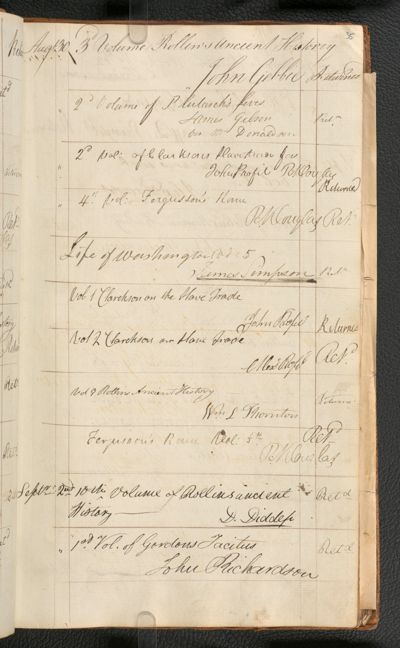 35
Augt 30 3d Volume Rollins Ancient History
John Gibbes Returned
" 2d Volume of Plutarch's lives
James Gibson Retd
on Mr Donaldson
" 2d Vol: of Clarkson
John Profit R K Douglas Returned
" 4th Vol. Fergusson's Rome
R K Douglas Ret.
Life of Washington Vol 5
James Simpson Retd
Vol 1 Clarckson on the Slave Trade
John Profit Returned
Vol 2 Clarckson on Slave Trade
Profit Retd
Vol 8 Rollins Ancient History
Wm L Thornton Returned
Ferguson's Rome Vol. 5th Retd
R. K Douglas
Septr 2nd 10th Volume of Rollins ancient Retd
History
D. Diddep
" 1st Vol. of Gordons Tacitus Retd
John Richardson